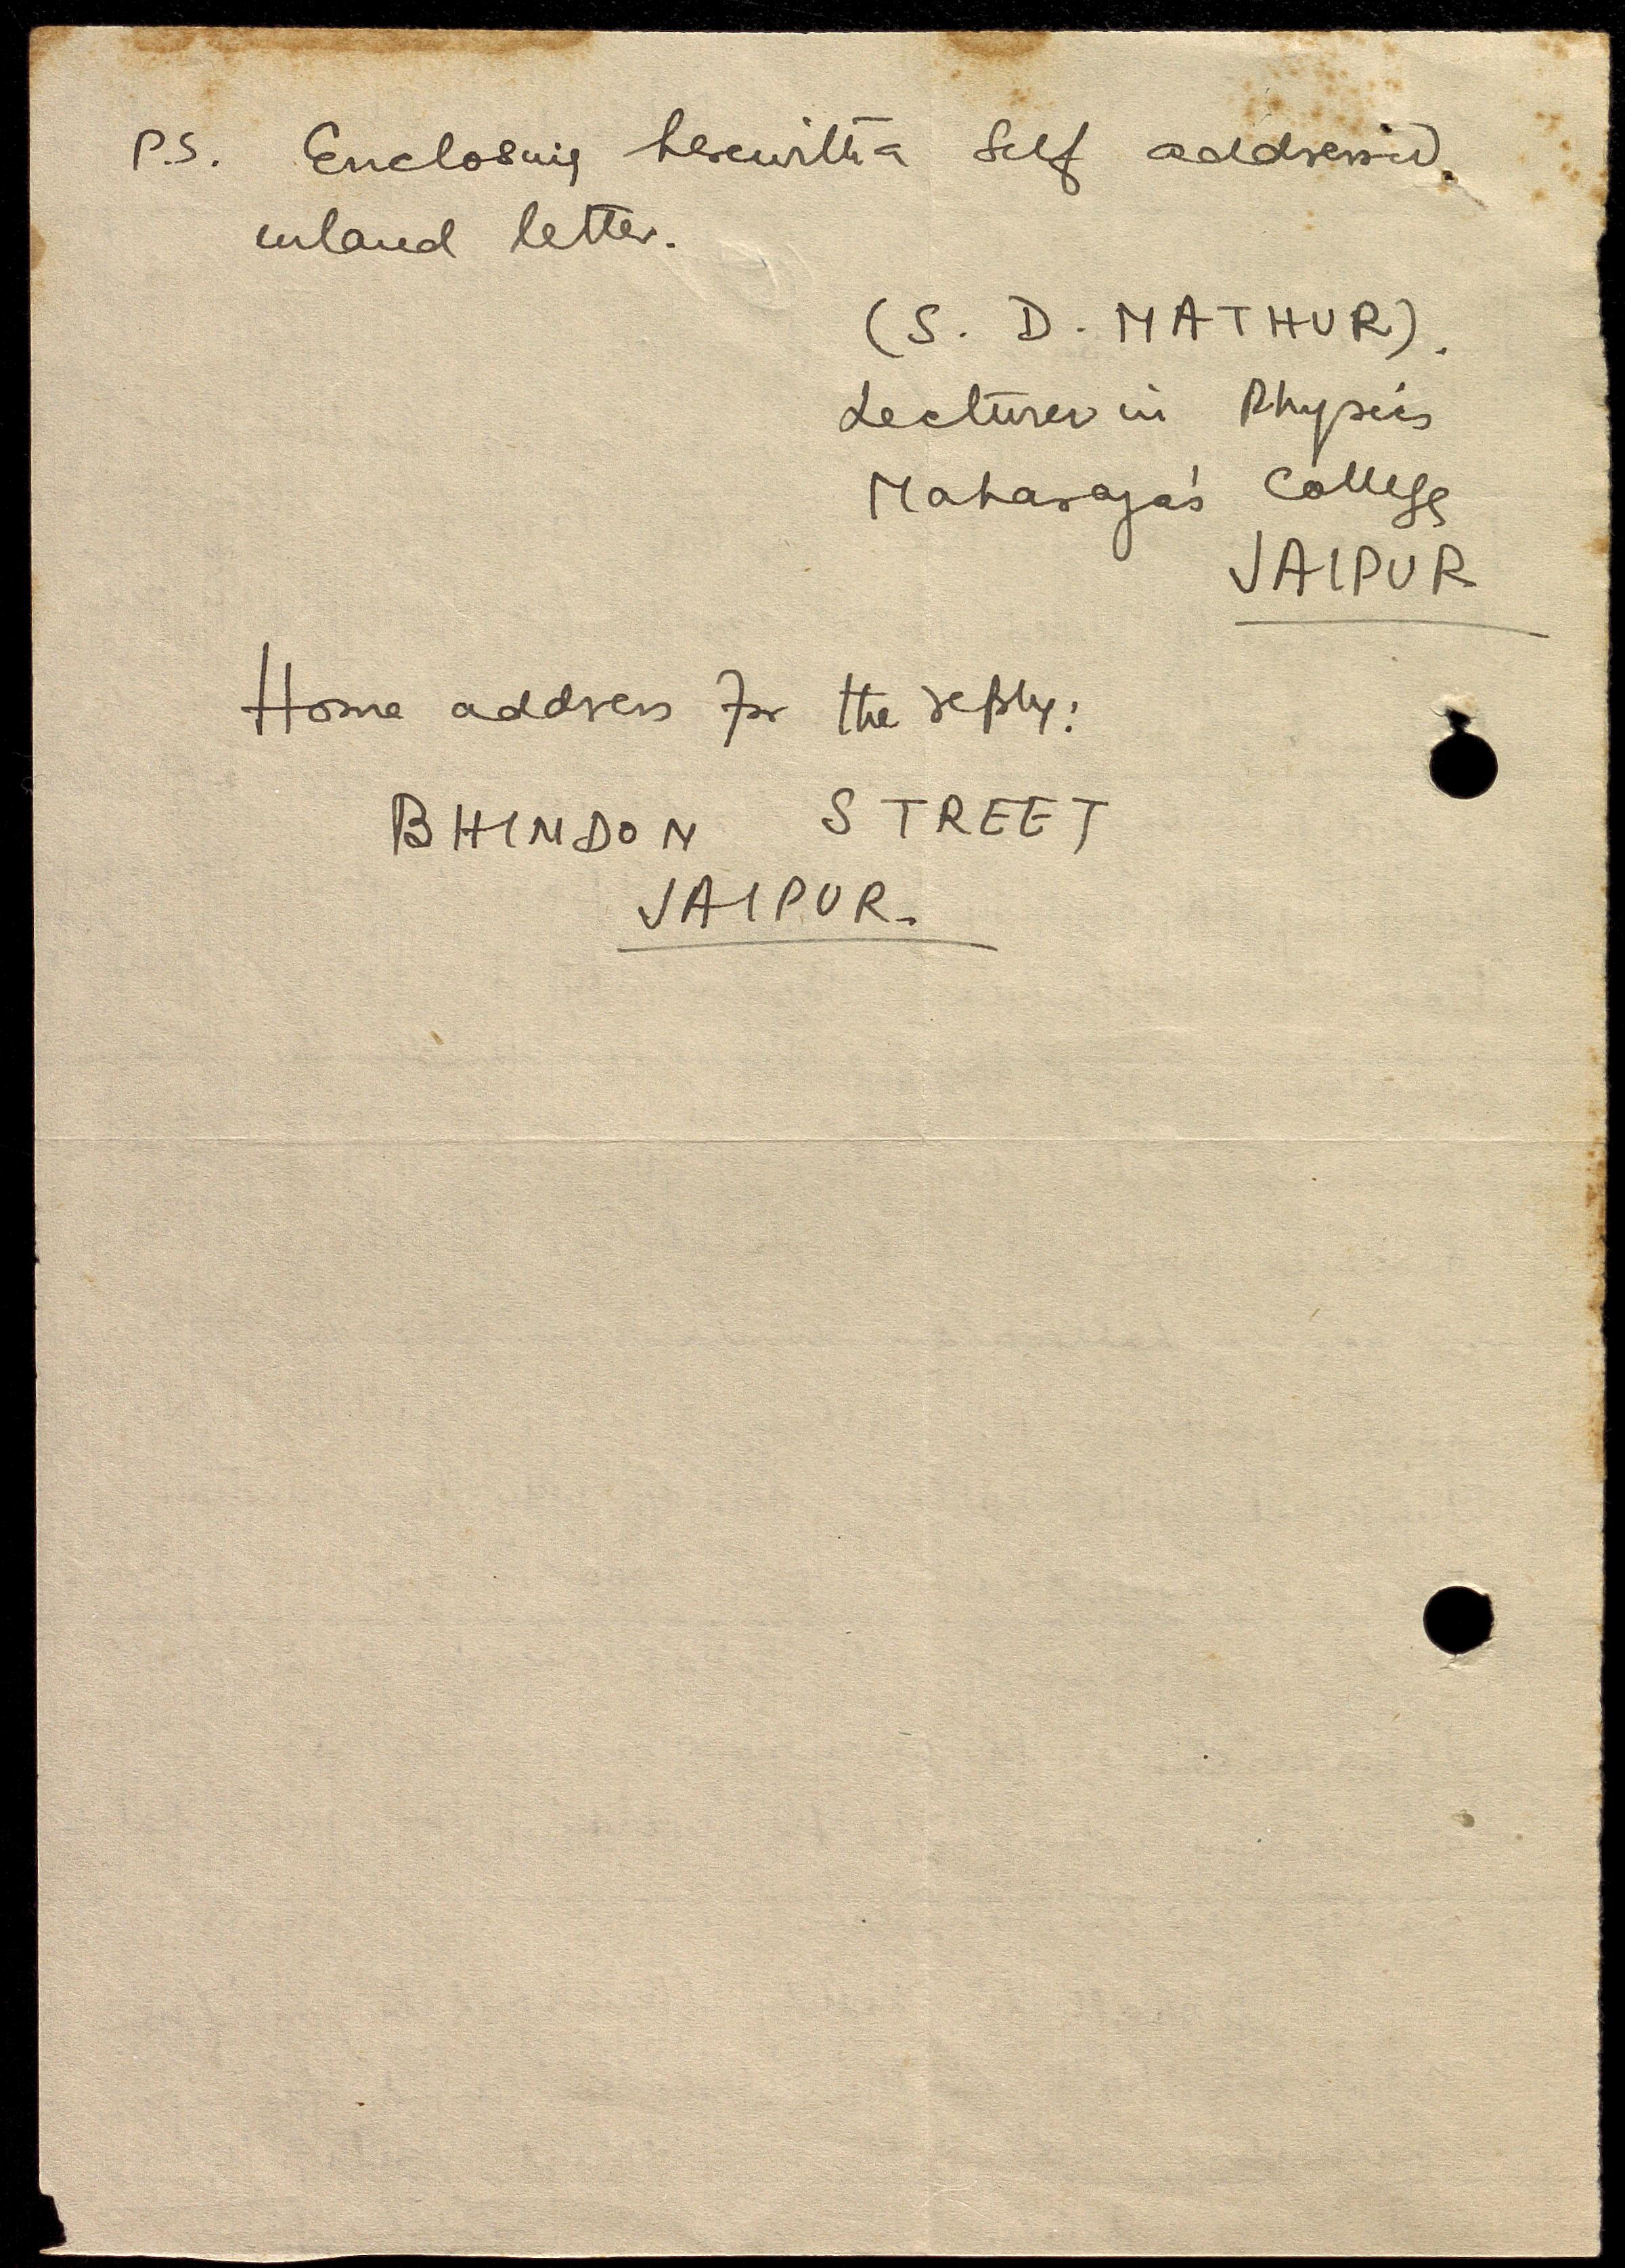 P.S. Enclosing herewith a Self addressed
inland letter.
(S. D. MATHUR).
Lecturer in Physics
Maharaja's College
JAIPUR
Home address for the reply:
BHINDON STREET
JAIPUR.